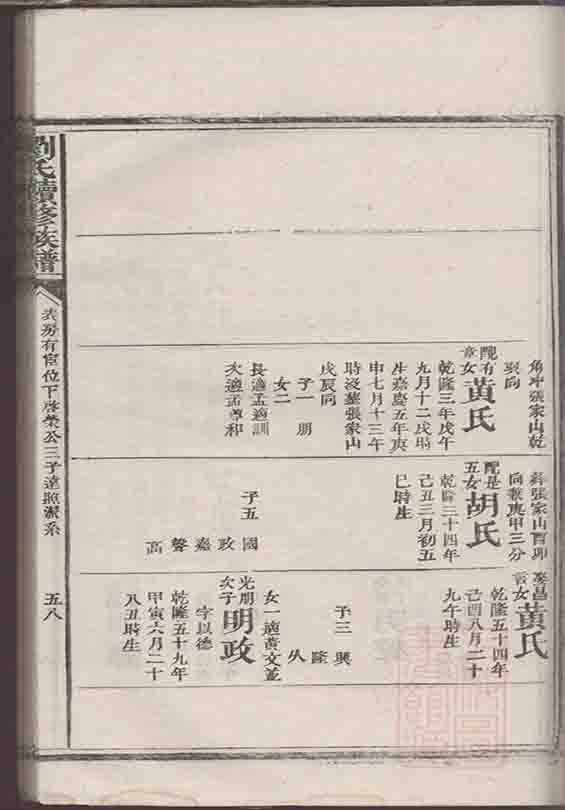 劉氏續修族譜
表房有宦位下啓榮公三子達照潔系
五八
角冲張家山乾
巽向
配有
章女
黃氏
乾隆三年戊午
九月十二戌時
生嘉慶五年庚
申七月十三午
時沒葬張家山
戌辰向
子一 朋
女二
長適孟適訓
次適孟尊和
葬張家山酉卯
向兼庚甲三分
配是
五女
胡氏
乾隆三十四年
己丑三月初五
巳時生
子五 國
政
嘉
聲
高
黃氏
乾隆五十四年
己酉八月二十
九午時生
子三 興
隆
久
女一適黃文並
光朋
次子
明政
字以德
乾隆五十九年
甲寅六月二十
八丑時生